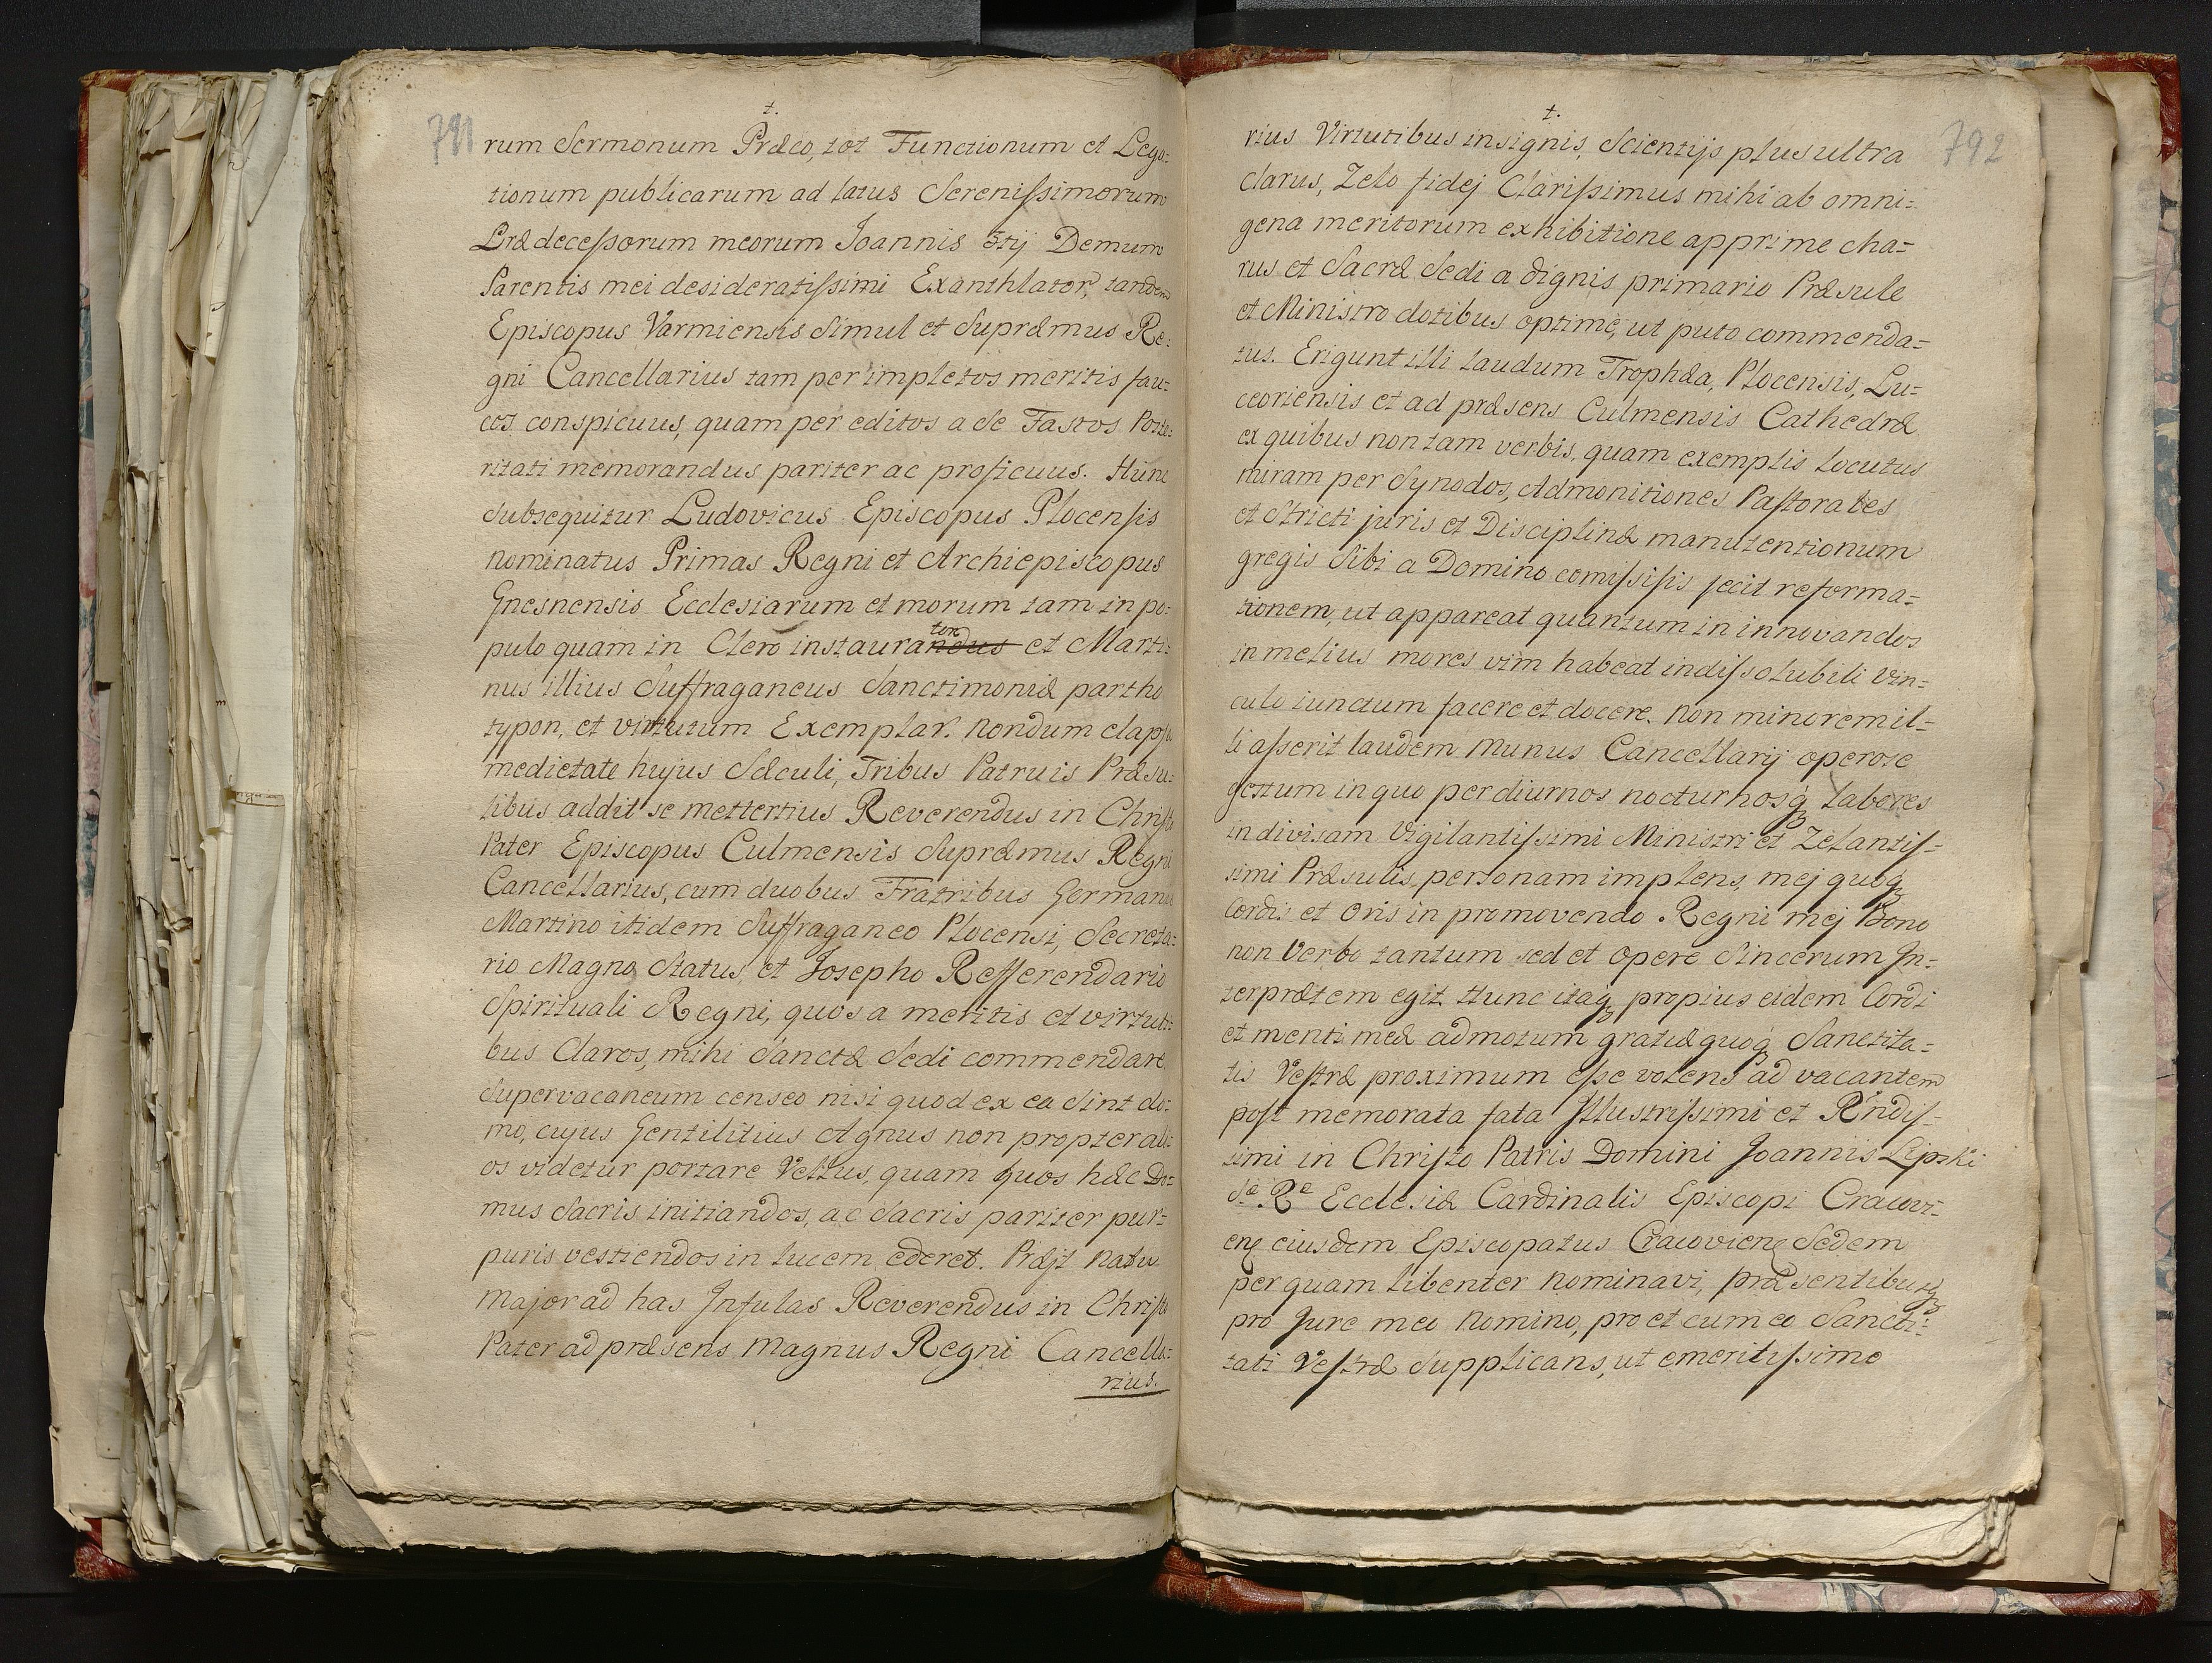 791
t.
rum Sermonum Præco, tot Functionum et Lega:
tionum publicarum ad latus Serenissimorum
Prædecessorum meorum Joannis 3tij Demum
Parentis mei desideratissimi Exanthlator, tandem
Episcopus Varmiensis Simul et Supræmus Re:
gni Cancellarius tam per impletos meritis fau:
ces conspicuus, quam per editos a se Fastos Poste:
ritati memorandus pariter ac proficuus. Hunc
Subsequitur Ludovicus Episcopus Plocensis
nominatus Primas Regni et Archiepiscopus
Gnesnensis Ecclesiarum et morum tam in po:
pulo quam in Clero instaurandus tor et Marti:
nus illius Suffraganeus Sanctimoniæ partho
typon, et virtutum Exemplar. Nondum elapsa
medietate hujus Sæculi, Tribus Patruis Præsu:
libus addit se mettertius Reverendus in Christo
Pater Episcopus Culmensis Supræmus Regni
Cancellarius, cum duobus Fratribus Germanis
Martino itidem Suffraganeo Plocensi, Secreta:
rio Magno Status, et Josepho Refferendario
Spirituali Regni, quos a meritis et virtuti:
bus Claros, mihi Sanctæ Sedi commendare
Supervacaneum censeo nisi quod ex ea Sint do:
mo, cujus Gentilitius Agnus non propter ali:
os videtur portare Vellus, quam quos hæc Do:
mus Sacris initiandos, ac Sacris pariter pur:
puris vestiendos in lucem ederet. Præjt Natu
major ad has Infulas Reverendus in Christo
Pater ad præsens Magnus Regni Cancella:
rius.
792
t.
rius Virtutibus insignis, Scientijs plus ultra
clarus, Zelo fidej Clarissimus mihi ab omni=
gena meritorum exhibitione apprime cha=
rus et Sacræ Sedi a dignis primario Præsule
et Ministro dotibus optime, ut puto commenda=
tus. Erigunt illi laudum Trophæa, Plocensis, Lu=
ceoriensis et ad præsens Culmensis Cathedræ
ex quibus non tam verbis, quam exemplis locutus
miram per Synodos, Admonitiones Pastorales
et Stricti juris et Disciplinæ manutentionum
gregis Sibi a Domino comissisis fecit reforma=
tionem, ut appareat quantum in innovandos
in melius mores vim habeat indissolubili vin=
culo iunctum facere et docere. Non minorem il=
li asserit laudem Munus Cancellarij operose
gestum in quo per diurnos nocturnosq labores
indivisam Vigilantissimi Ministri et Zelantis=
simi Præsulis, personam implens, mej quoq
Cordis et Oris in promovendo Regni mej Bono
non Verbo tantum sed et Opere Sincerum In=
terprætem egit. Hunc itaq propius eidem Cordi
et menti meæ admotum gratiæ quoq Sanctita=
tis Vestræ proximum esse volens ad vacantem
post memorata fata Illustrissimi et Rndis=
simi in Christo Patris Domini Joannis Lipski
Sæ Ræ Ecclesiæ Cardinalis Episcopi Cracovi=
ens eiusdem Episcopatus Cracoviens Sedem
per quam libenter nominavi, præsentibusq
pro Jure meo Nomino, pro et cum eo Sancti=
tati Vestræ Supplicans, ut emeritissimo